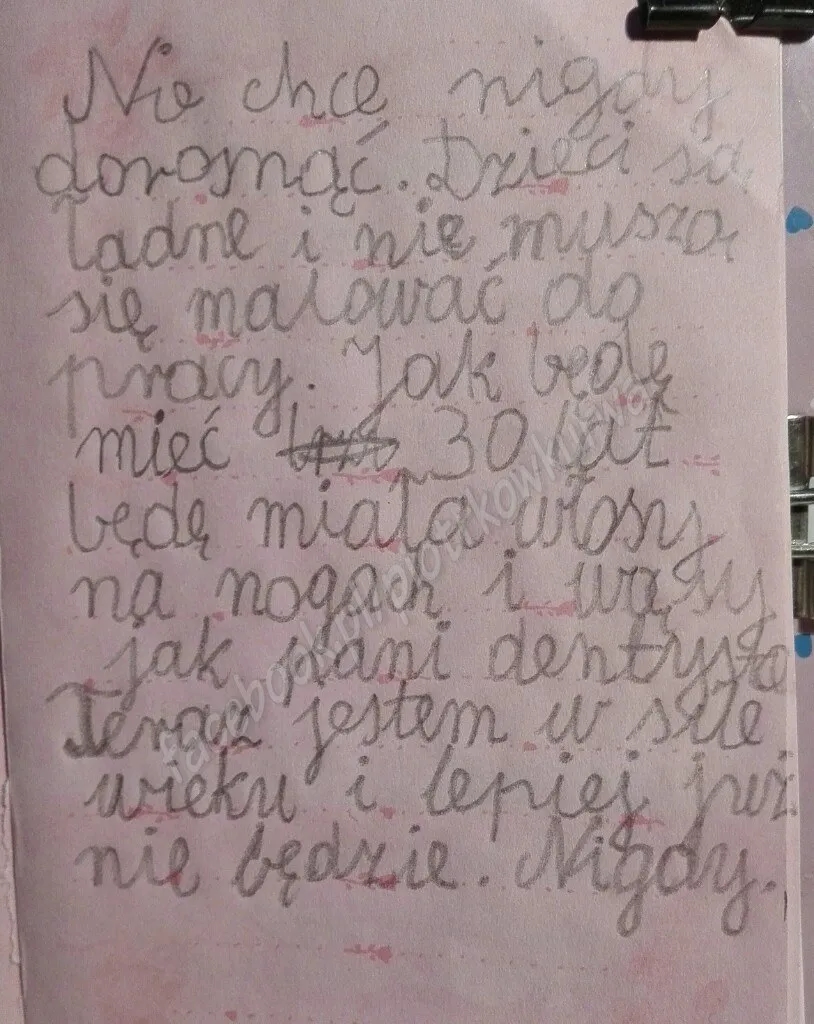 Nie chcę nigdy
dorosnąć. Dzieci są
ładne i nie muszą
się malować do
pracy. Jak będę
mieć 30 lat
będę miała włosy
na nogach i wąsy
jak pani dentysta
Teraz jestem w sile
wieku i lepiej już
nie będzie. Nigdy.
facebook.pl/piotrkowkultwa